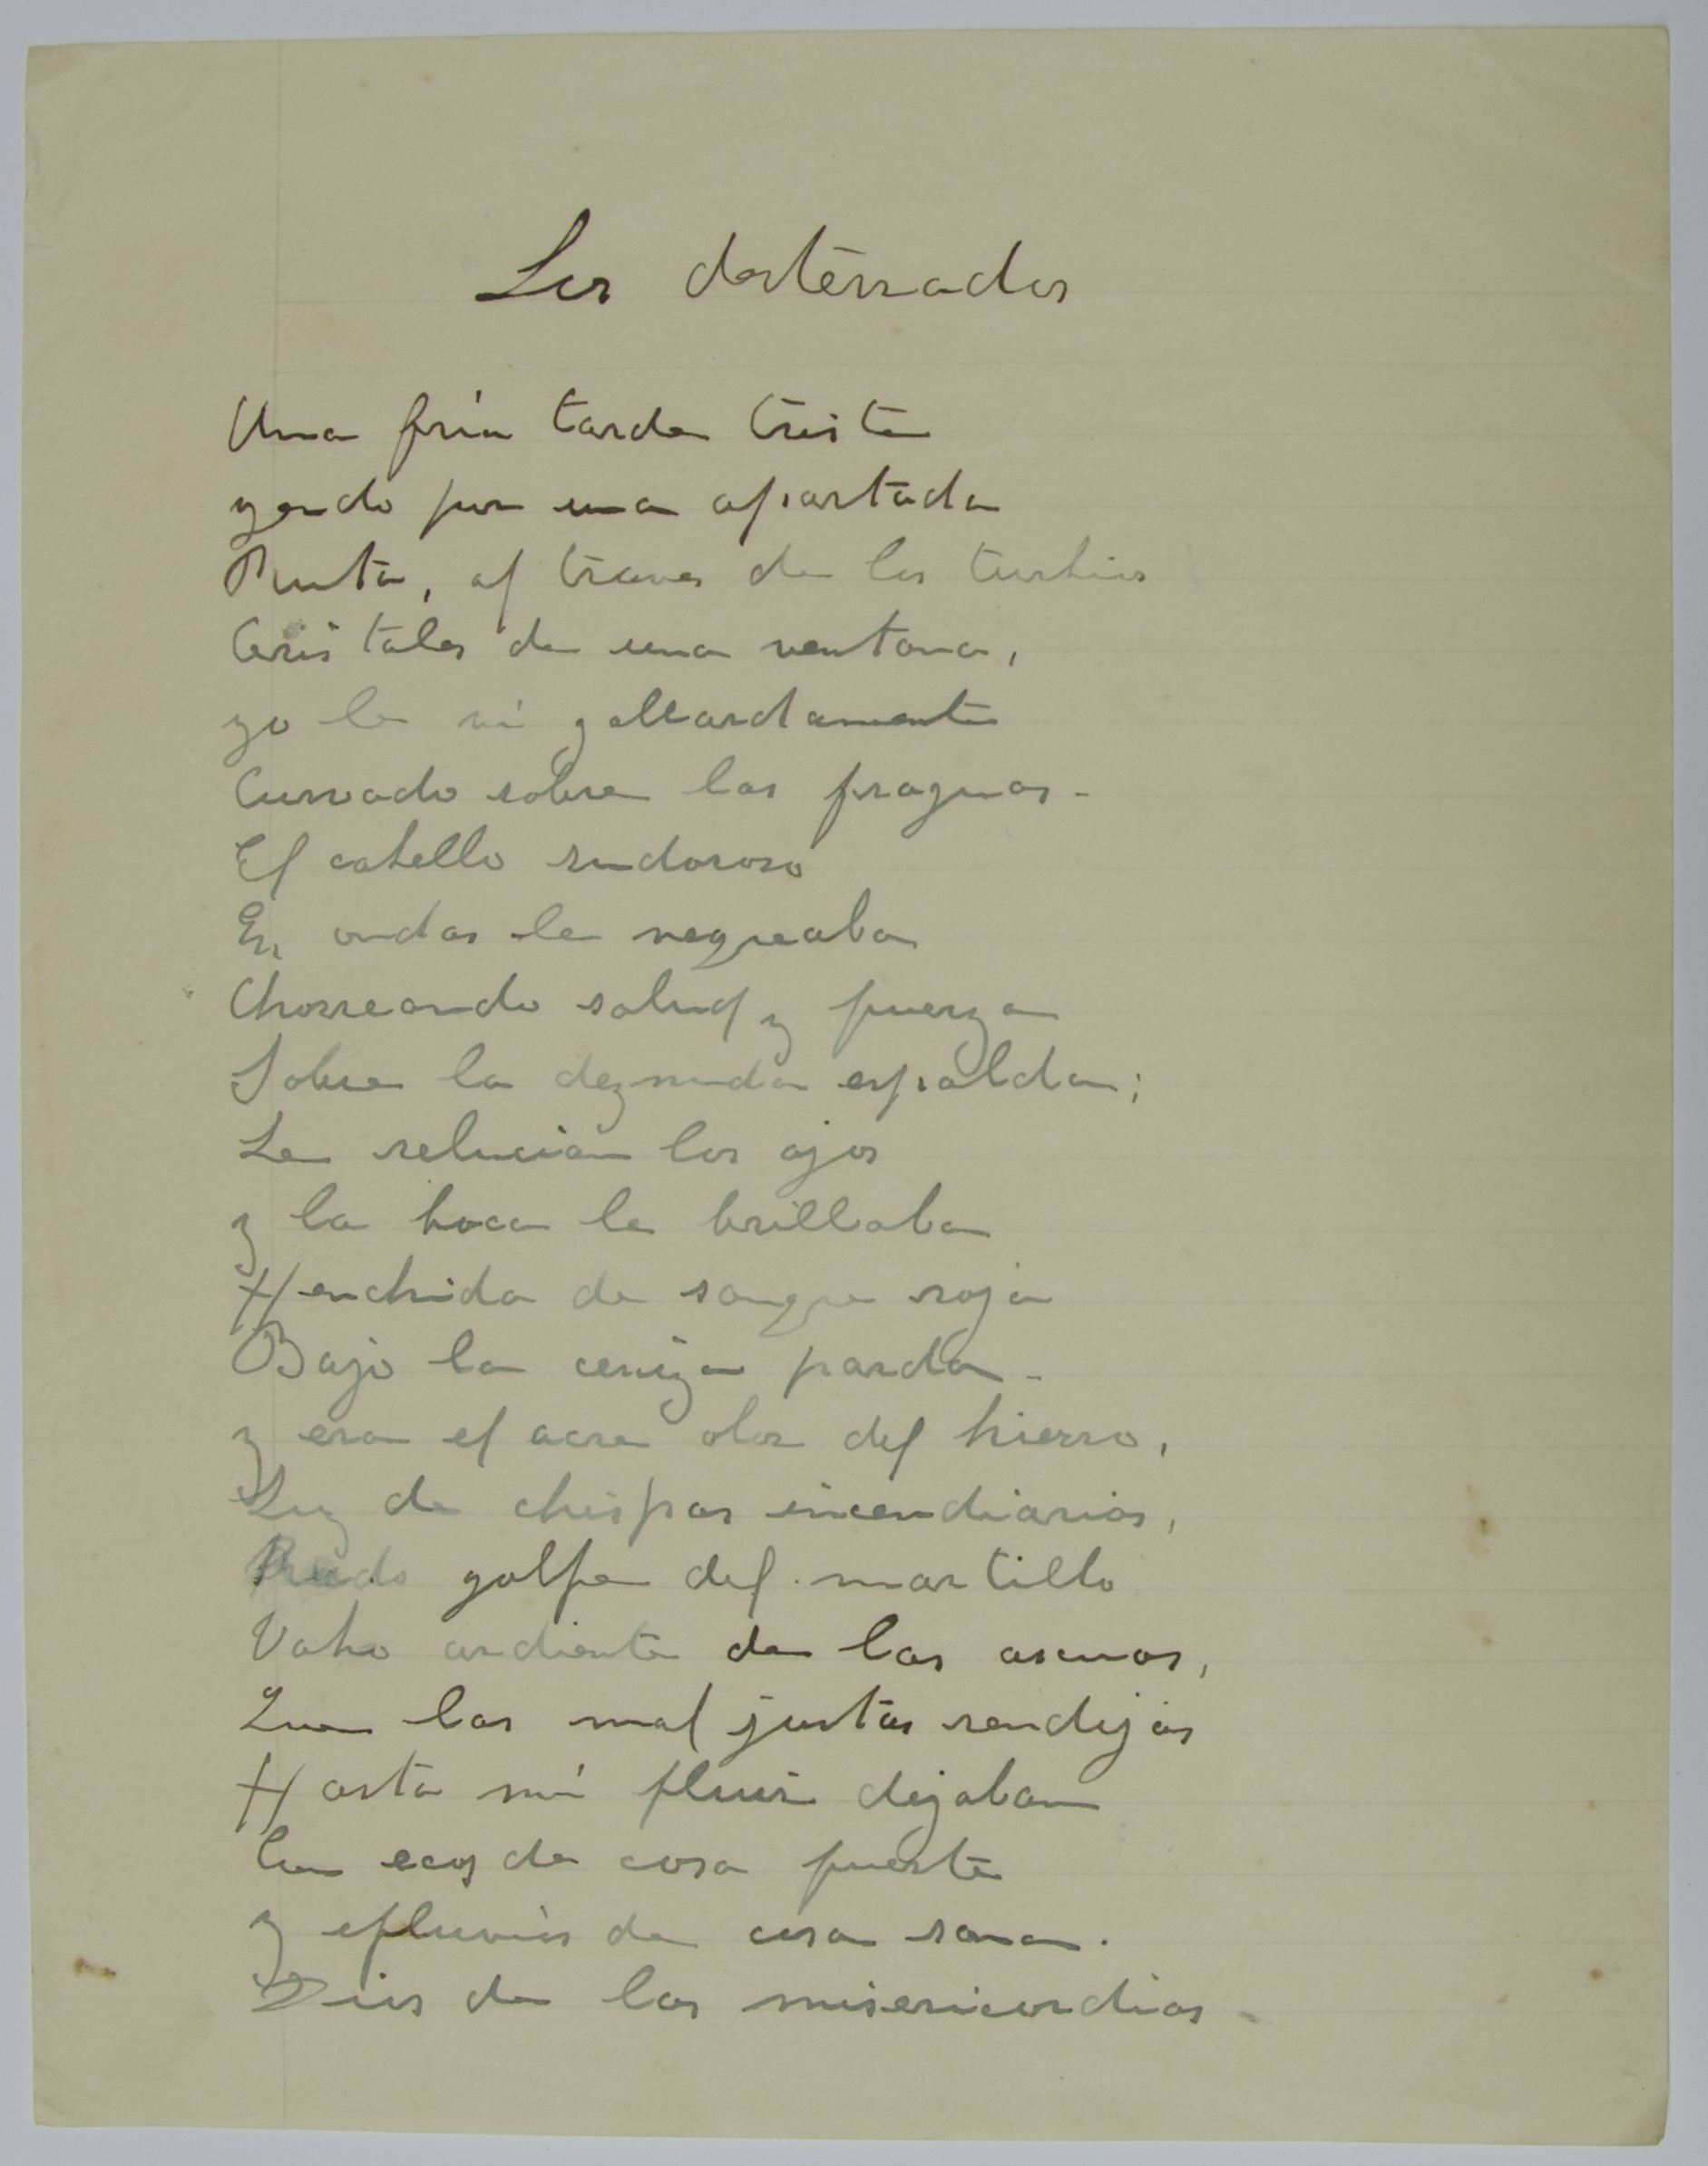 Los desterrados
Una fria tarde triste
yendo por una apartada
Ruta, al traves de los turbios
Cristales de una ventana,
yo le ví gallardamente
Curvado sobre las fraguas.
El cabello sudoroso
En ondas le negreaba
Chorreando salud y fuerza
Sobre la deznuda espalda;
Le relucian los ojos
y la boca le brillaba
Henchida de sangre roja
Bajo la ceniza parda.
y era el acre olor del hierro,
Luz de chispas incendiarias,
Rudo golpe del martillo
Vaho ardiente de las ascuas,
Que las mal justas rendijas
Hasta mí fluir dejaban
Con ecos de cosa fuerte
y efluvios de cosa sana.
Dios de las misericordias